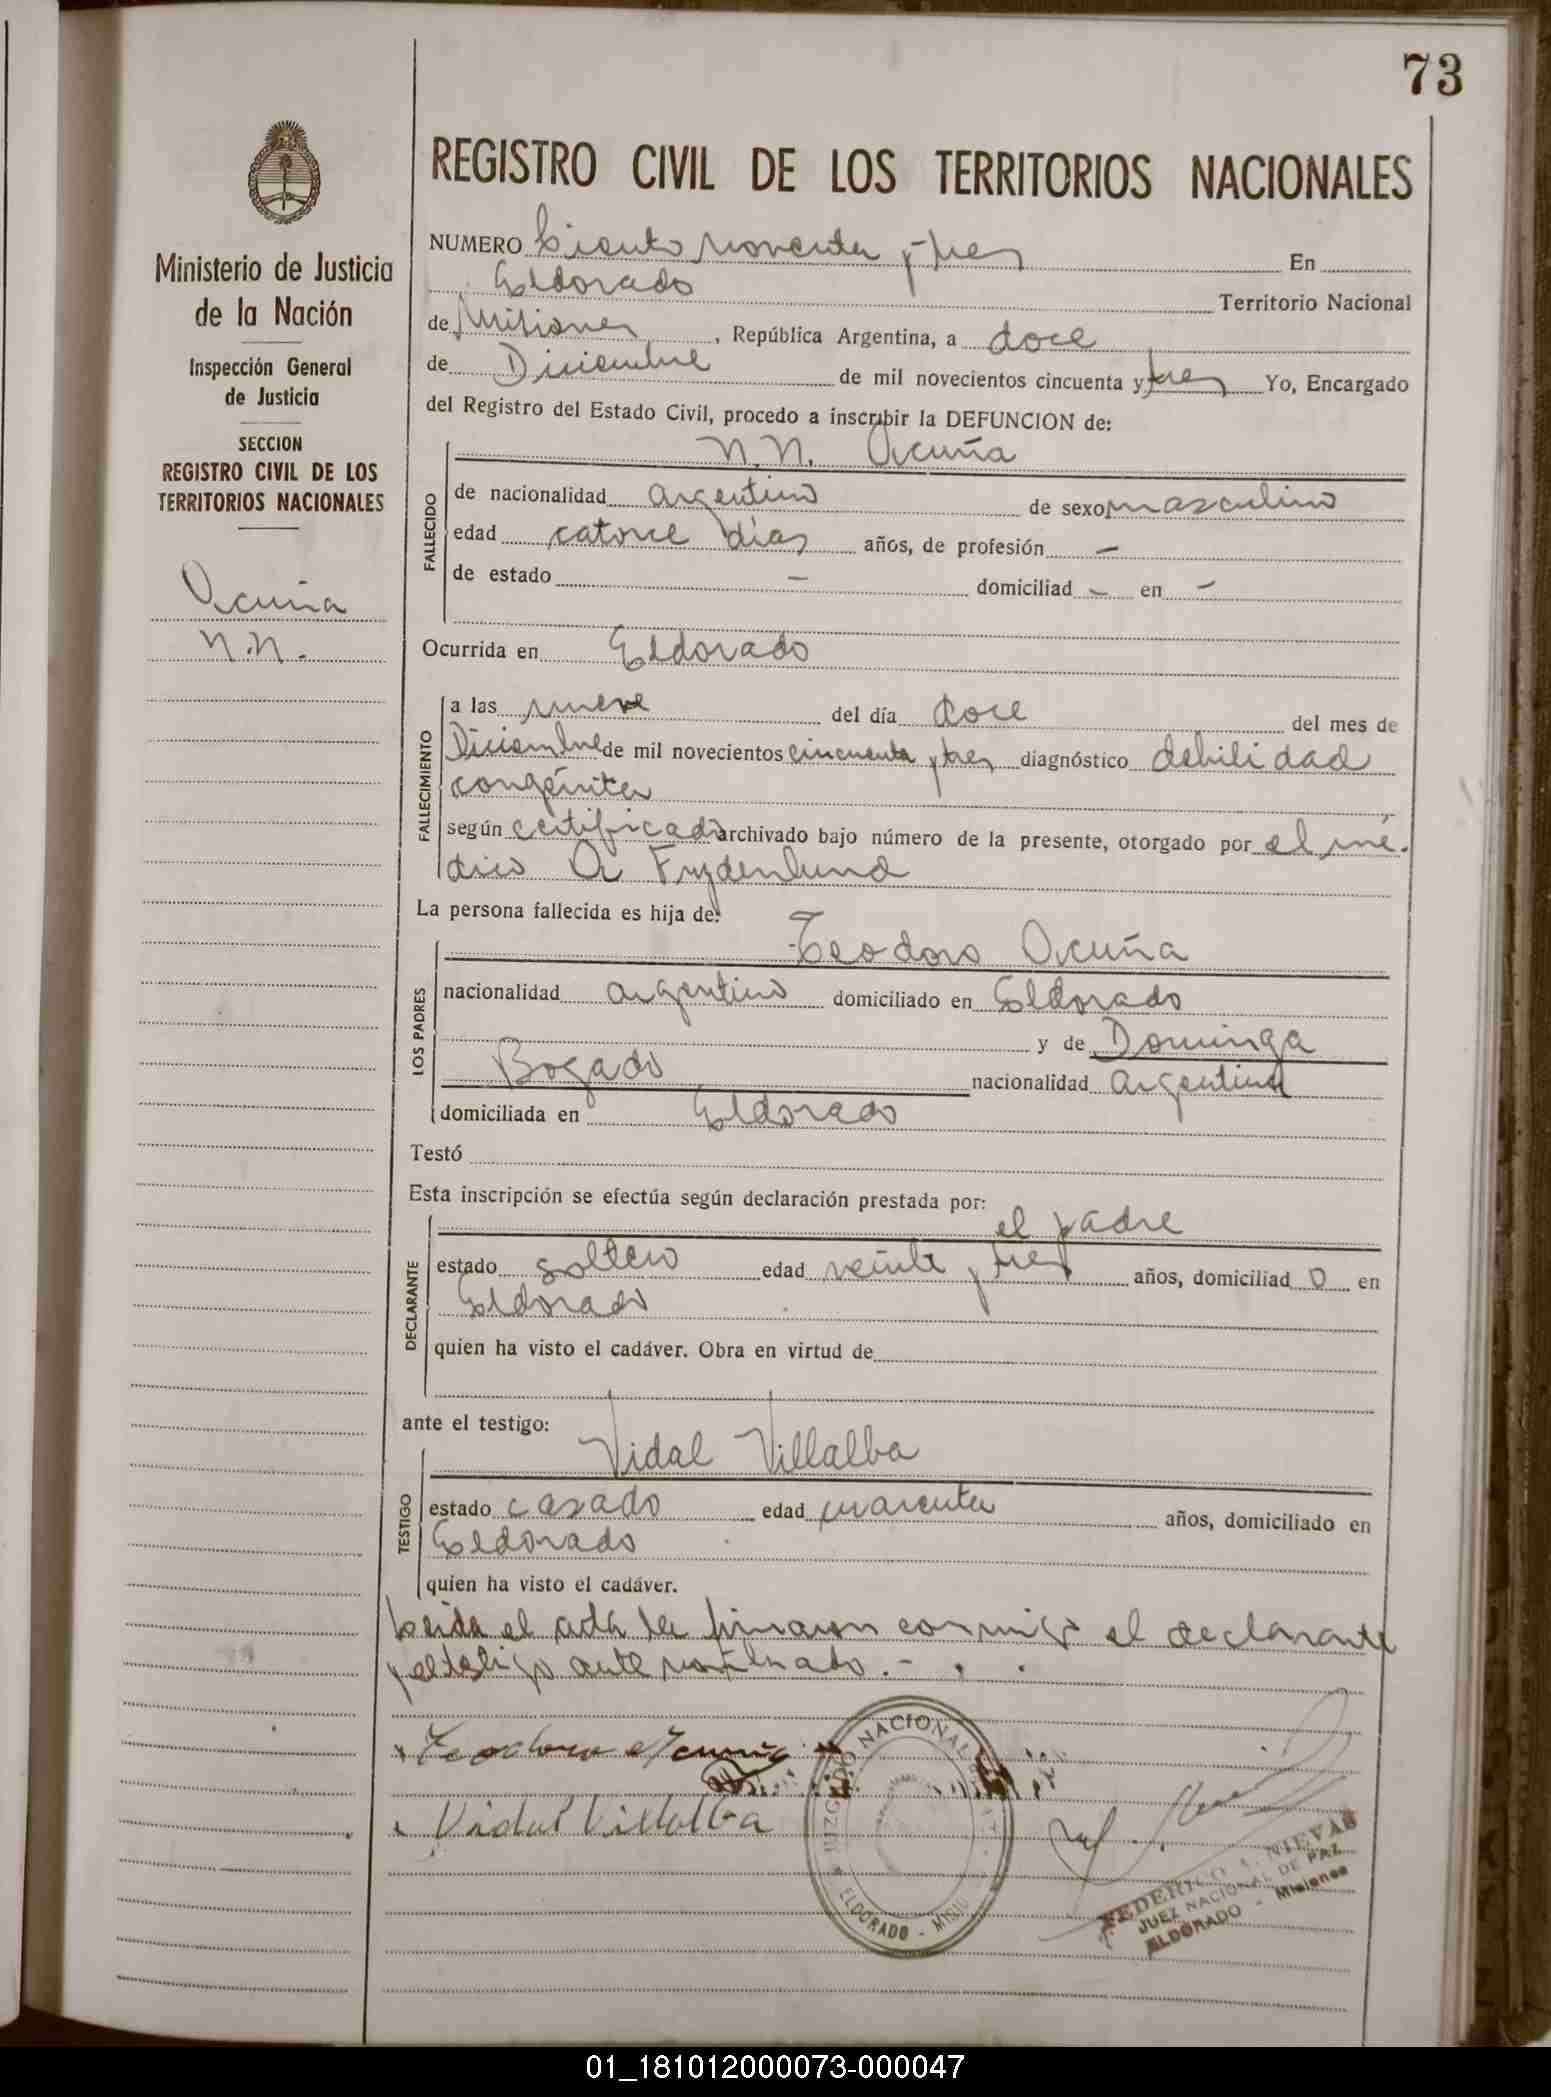 73
REGISTRO CIVIL DE LOS TERRITORIOS NACIONALES
Ministerio de Justicia
de la Nación
Inspección General
de Justicia
SECCION
REGISTRO CIVIL DE LOS
TERRITORIOS NACIONALES
Acuña
N.N.
NUMERO Ciento noventa y tres En
Eldorado Territorio Nacional
de Misiones, República Argentina, a doce
de Diciembre de mil novecientos cincuenta y tres Yo, Encargado
del Registro del Estado Civil, procedo a inscribir la DEFUNCION de:
N.N. Acuña
FALLECIDO
de nacionalidad argentino de sexo masculino
edad catorce días años, de profesión —
de estado — domiciliad — en —
Ocurrida en Eldorado
FALLECIMIENTO
a las nueve del día doce del mes de
Diciembre de mil novecientos cincuenta y tres diagnóstico debilidad
congénita
según certificado archivado bajo número de la presente, otorgado por el mé-
dico A Frydenlund
La persona fallecida es hija de:
LOS PADRES
Teodoro Acuña
nacionalidad argentino domiciliado en Eldorado
y de Dominga
Bogado nacionalidad argentina
domiciliada en Eldorado
Testó
Esta inscripción se efectúa según declaración prestada por:
DECLARANTE
el padre
estado soltero edad veinte y tres años, domiciliad o en
Eldorado
quien ha visto el cadáver. Obra en virtud de
ante el testigo:
TESTIGO
Vidal Villalba
estado casado edad cuarenta años, domiciliado en
Eldorado
quien ha visto el cadáver.
Leida el acta la firmaron conmigo el declarante
y el testigo ante nombrado.-
Teodoro Acuña
Vidal Villalba
JUZGADO NACIONAL DE PAZ
ELDORADO - MISIO
FEDERICO NIEVAS
JUEZ NACIONAL DE PAZ
ELDORADO - Misiones
01_181012000073-000047